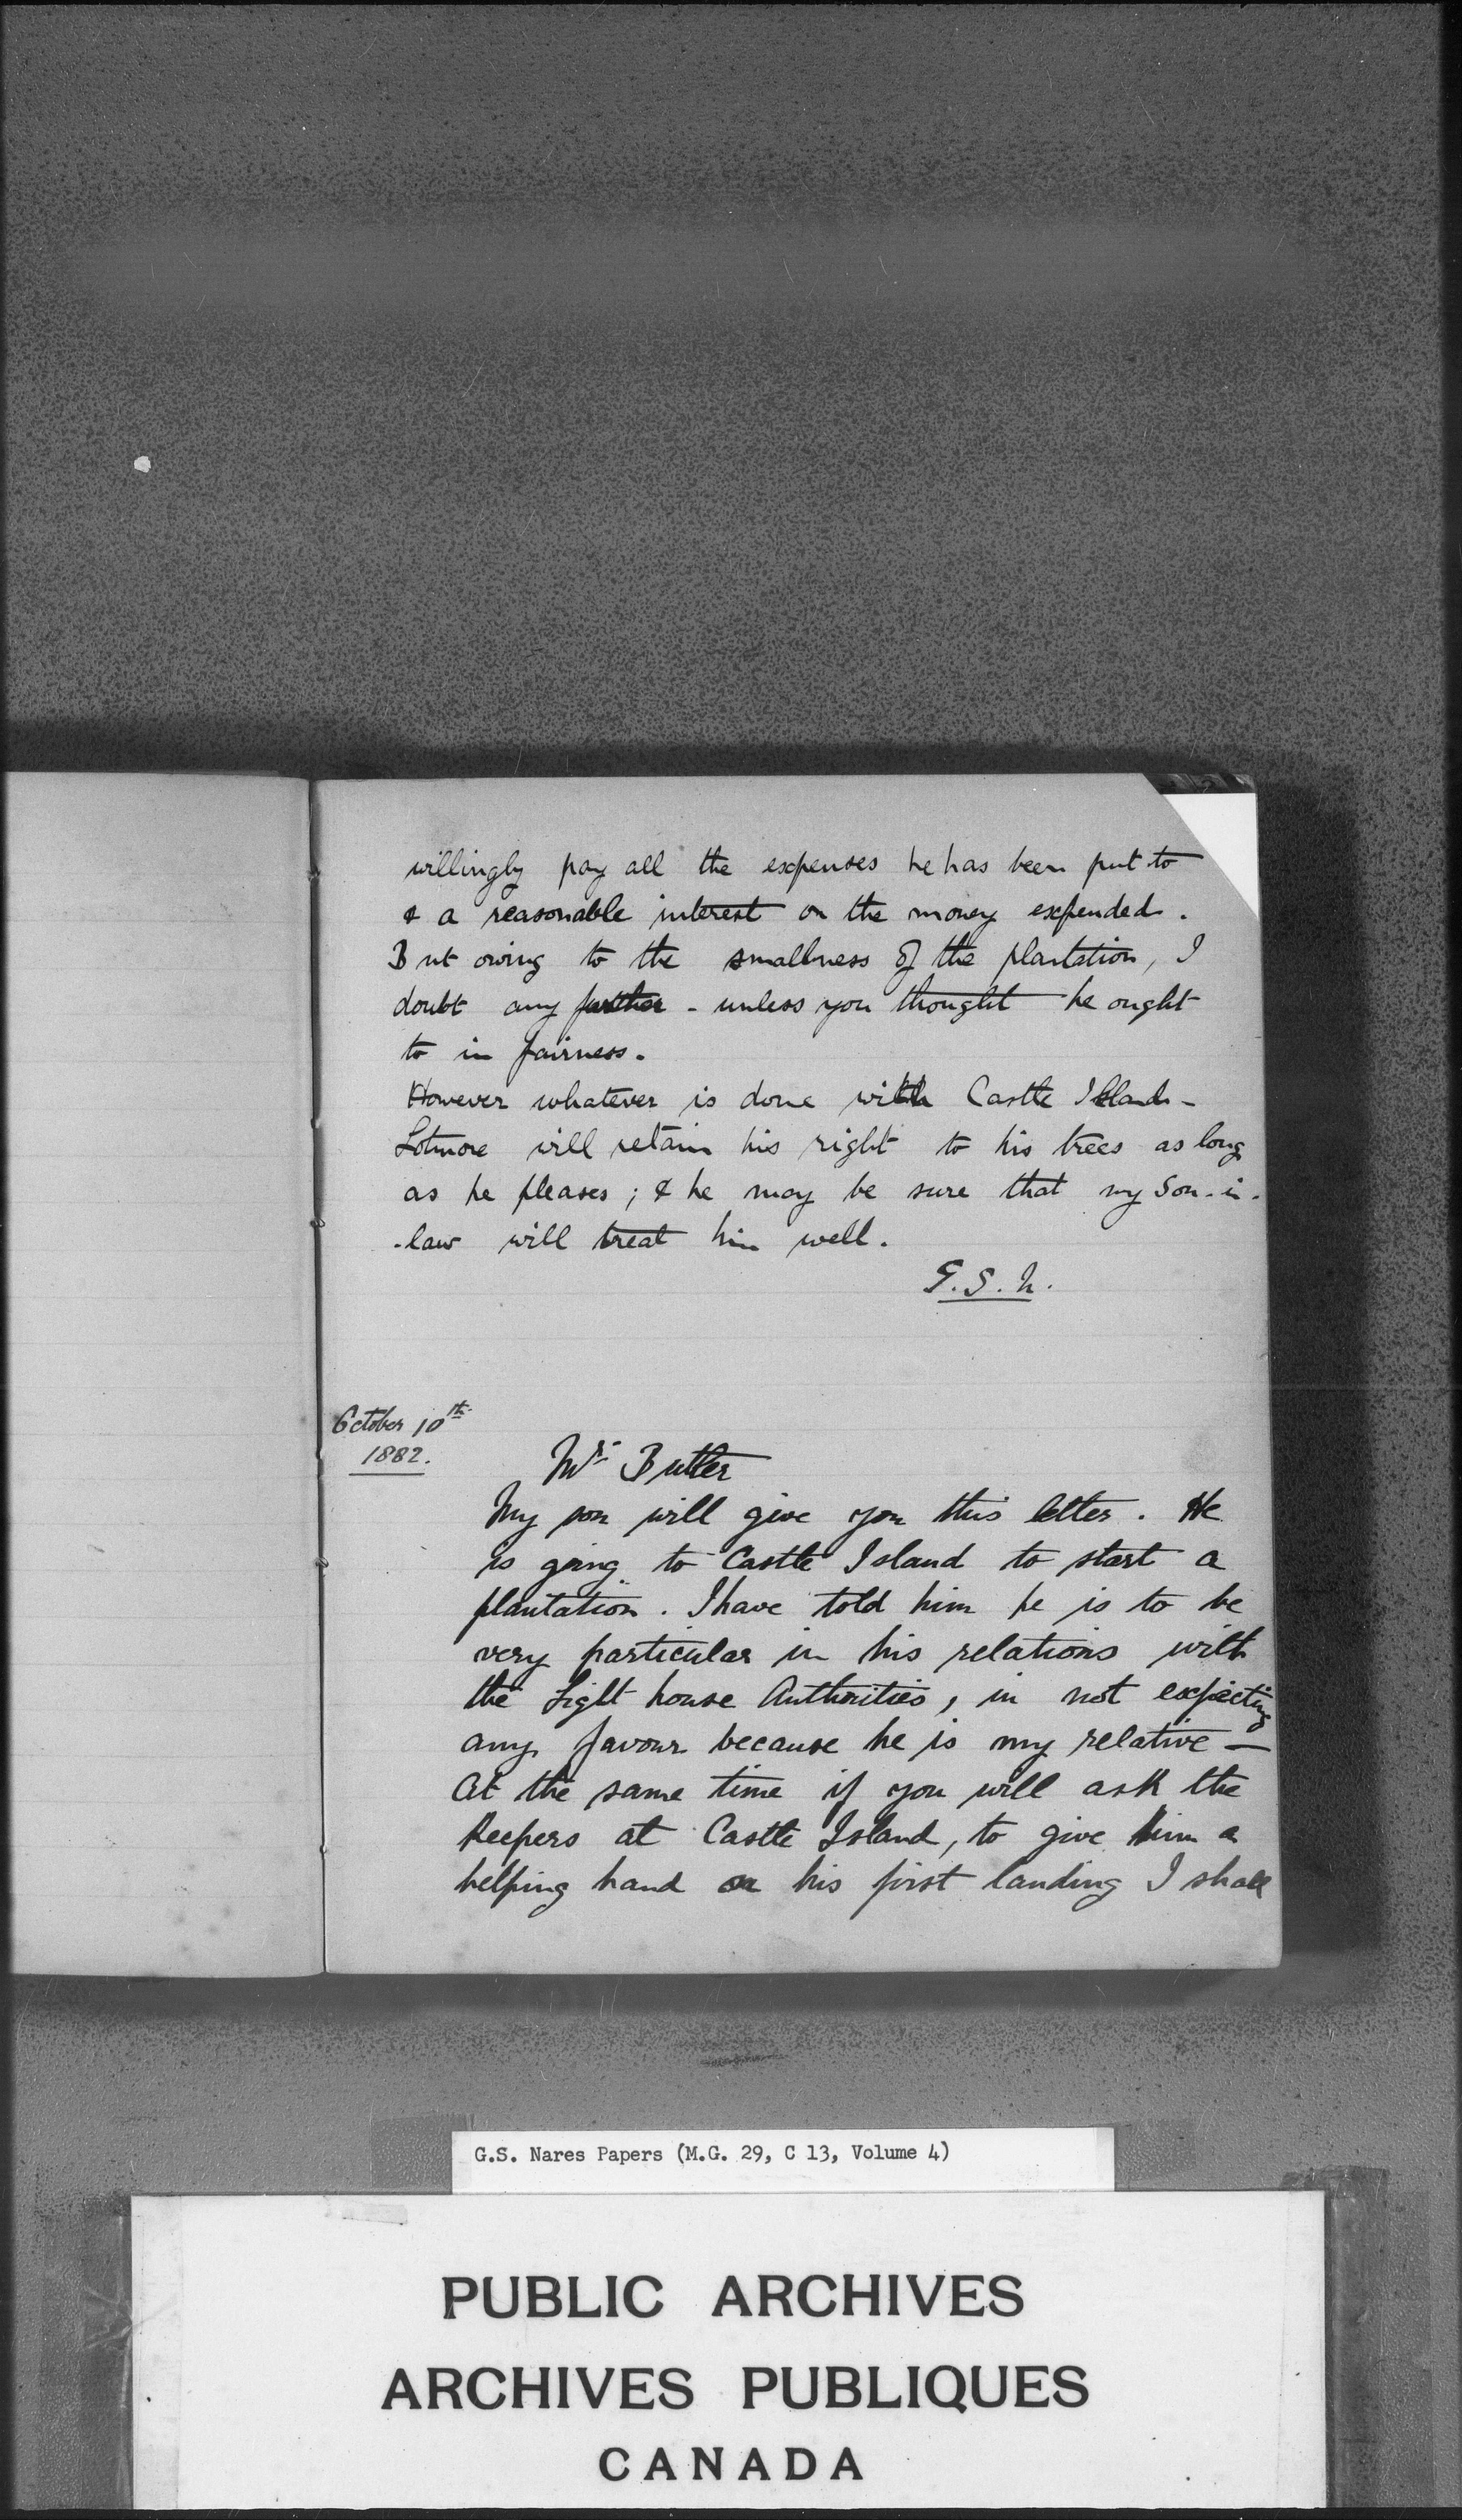 willingly pay all the expenses he has been put to
& a reasonable interest on the money expended.
But owing to the smallness of the plantation, I
doubt any further - unless you thought he ought
to in fairness.
However whatever is done with Castle Island -
Lotmore will retain his right to his trees as long
as he pleases; & he may be sure that my Son-in-
-law will treat him well.
G.S.N.
October 10th
1882.
Mr Butler
My son will give you this letter. He
is going to Castle Island to start a
plantation. I have told him he is to be
very particular in his relations with
the Light house Authorities, in not expecting
any favour because he is my relative —
At the same time if you will ask the
Keepers at Castle Island, to give him a
helping hand on his first landing I shall
G.S. Nares Papers (M.G. 29, C 13, Volume 4)
PUBLIC ARCHIVES
ARCHIVES PUBLIQUES
CANADA